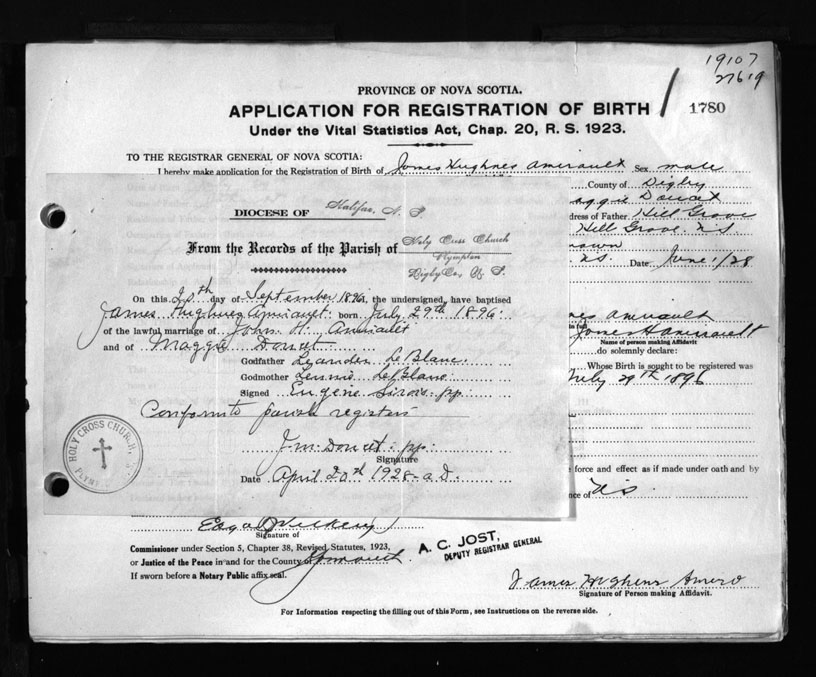 19107
27619
PROVINCE OF NOVA SCOTIA.
APPLICATION FOR REGISTRATION OF BIRTH
1780
Under the Vital Statistics Act, Chap. 20, R. S. 1923.
TO THE REGISTRAR GENERAL OF NOVA SCOTIA:
I hereby make application for the Registration of Birth of James Hughnes Amirault Sex male
County of Digby
Maggie Doucet
dress of Father Hill Grove
Hill Grove. N.S.
N.S. Date June 1/28
DIOCESE OF Halifax, N. S.
From the Records of the Parish of Holy Cross Church
Plympton
Digby Co., N. S.
On this 20th day of September 1896, the undersigned, have baptised
James Amirault born July 29th 1896
of the lawful marriage of John H. Amirault
and of Maggie Doucet
Godfather Leander LeBlanc
Godmother LeBlanc
Signed Eugene pp.
Conforms to parish registers
J. M. Doucet pp.
Signature
Date April 20th 1928 A.D.
HOLY CROSS CHURCH,
Amirault
Name of person making Affidavit
do solemnly declare:
Whose Birth is sought to be registered was
July 29th 1896
force and effect as if made under oath and by
nce of
Signature of
Commissioner under Section 5, Chapter 38, Revised Statutes, 1923,
or Justice of the Peace in and for the County of Yarmouth.
If sworn before a Notary Public affix seal.
A. C. JOST,
DEPUTY REGISTRAR GENERAL
James Hughens Amero
Signature of Person making Affidavit.
For Information respecting the filling out of this Form, see Instructions on the reverse side.